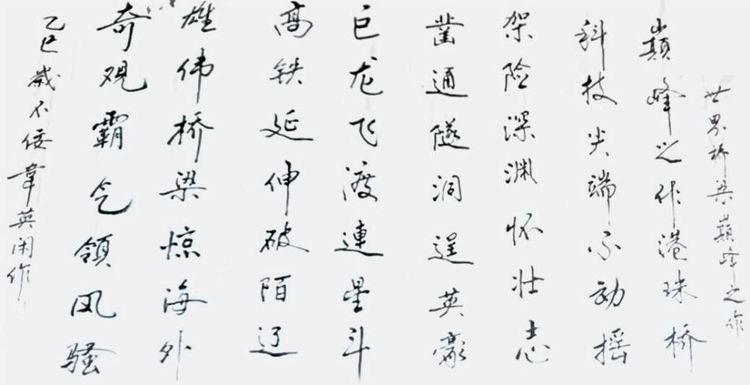 世界桥梁巅峰之作
巅峰之作港珠桥
科技尖端不动摇
架险深渊怀壮志
凿通隧洞逞英豪
巨龙飞渡連星斗
高铁延伸破陌辽
雄伟桥梁惊海外
奇观霸气领风骚
乙巳歳不佞韋英闲作